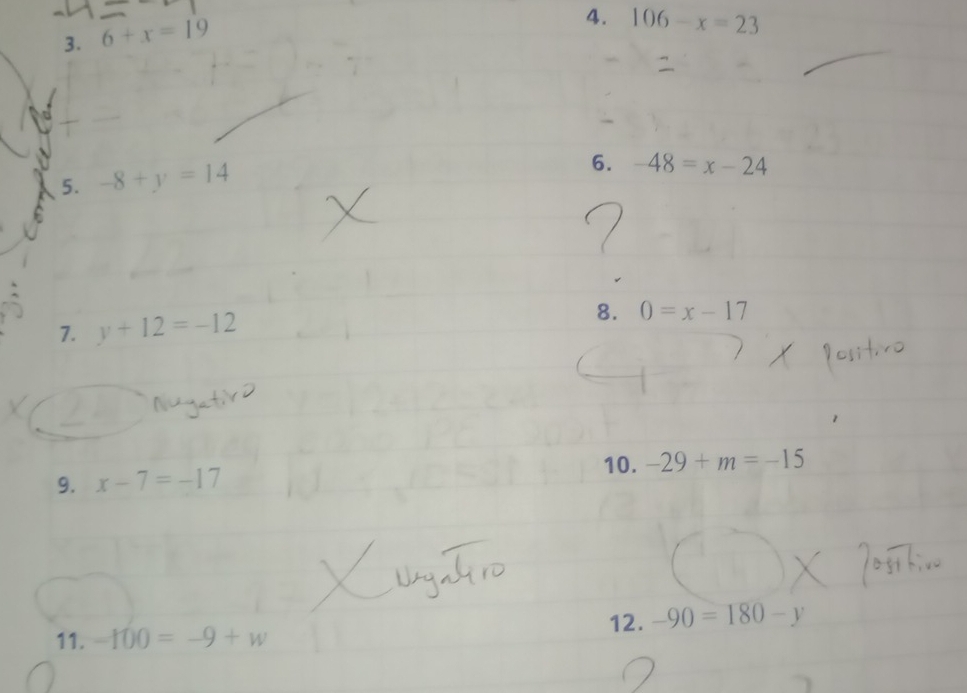 3. 6 + x = 19
4. 106 – x = 23
5. –8 + y = 14
6. –48 = x – 24
X
?
7. y + 12 = –12
8. 0 = x – 17
X Positivo
X 24 Negativo
9. x – 7 = –17
10. –29 + m = –15
X Negativo
X Positivo
11. –100 = –9 + w
12. –90 = 180 – y
?